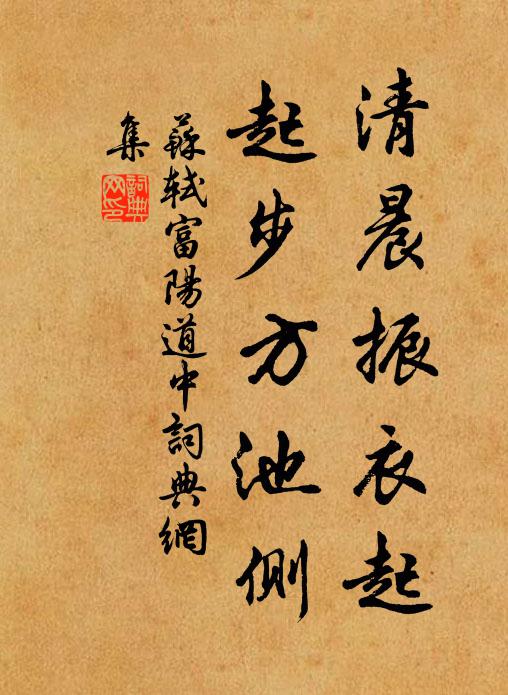 清晨振衣起
起步方池側
蘇軾富陽道中詞典網
集
詞典網印